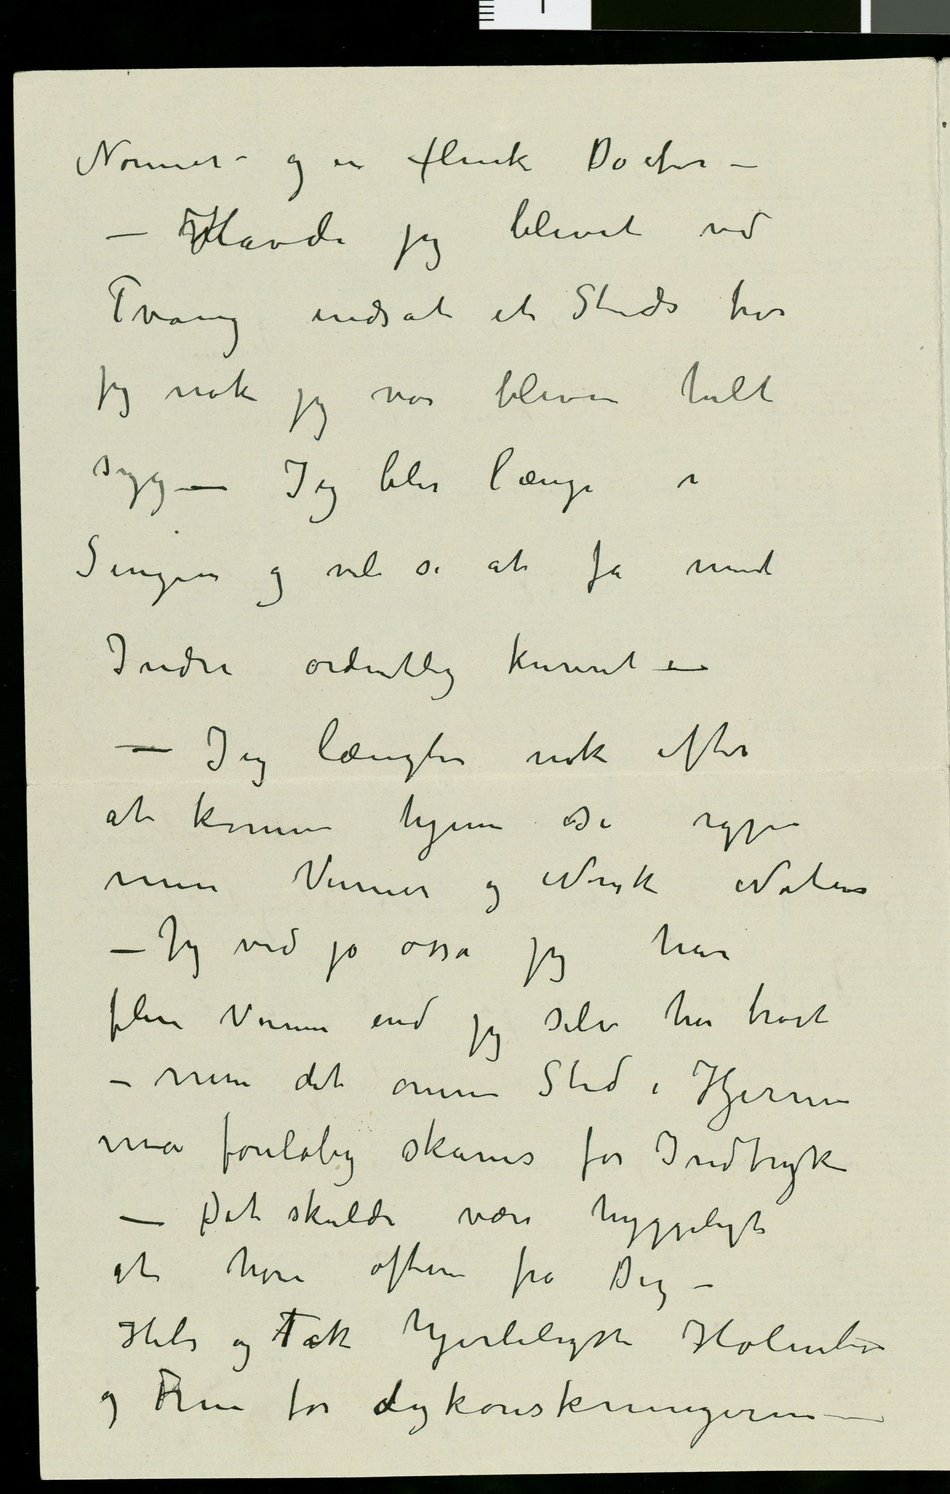 Nonner – og en flink Doctor –
– Havde jeg blevet ved
Tvang indsat et Steds tror
jeg nok jeg var bleven helt
syg – Jeg blir længe i
Sengen og vil se at få mit
Indre ordentlig kureret –
– Jeg længter nok efter
at komme hjem se igjen
mine Venner og Norsk Natur
– Jeg ved jo osså jeg har
flere Venner end jeg selv har troet
– men det ømme Sted i Hjernen
må foreløbig skånes for Indtryk
– Det skulde være hyggeligt
at høre oftere fra Dig –
Hils og Tak hjerteligste Holmboe
og Frue for lykønskningerne –